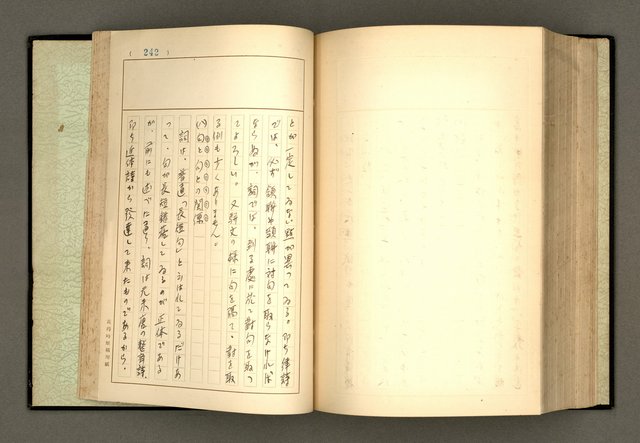 ( 242 )
とが一定してゐない點が異つてゐる。即ち律詩
では、必ず頷聯や頸聯に対句を取らなければ
ならぬが、詞では、到る處に於て對句を取つ
てよろしい。又駢文の様に句を隔て、對を取
る例も少くありません。
(ハ)句と句との関係
詞は、普通「長短句」と云はれてゐるだけあ
つて、句が長短錯落してゐるのが正体である
が、前にも述べた通り、詞は元来唐の整斉詩、
即ち近体詩から發達して来たものであるから、